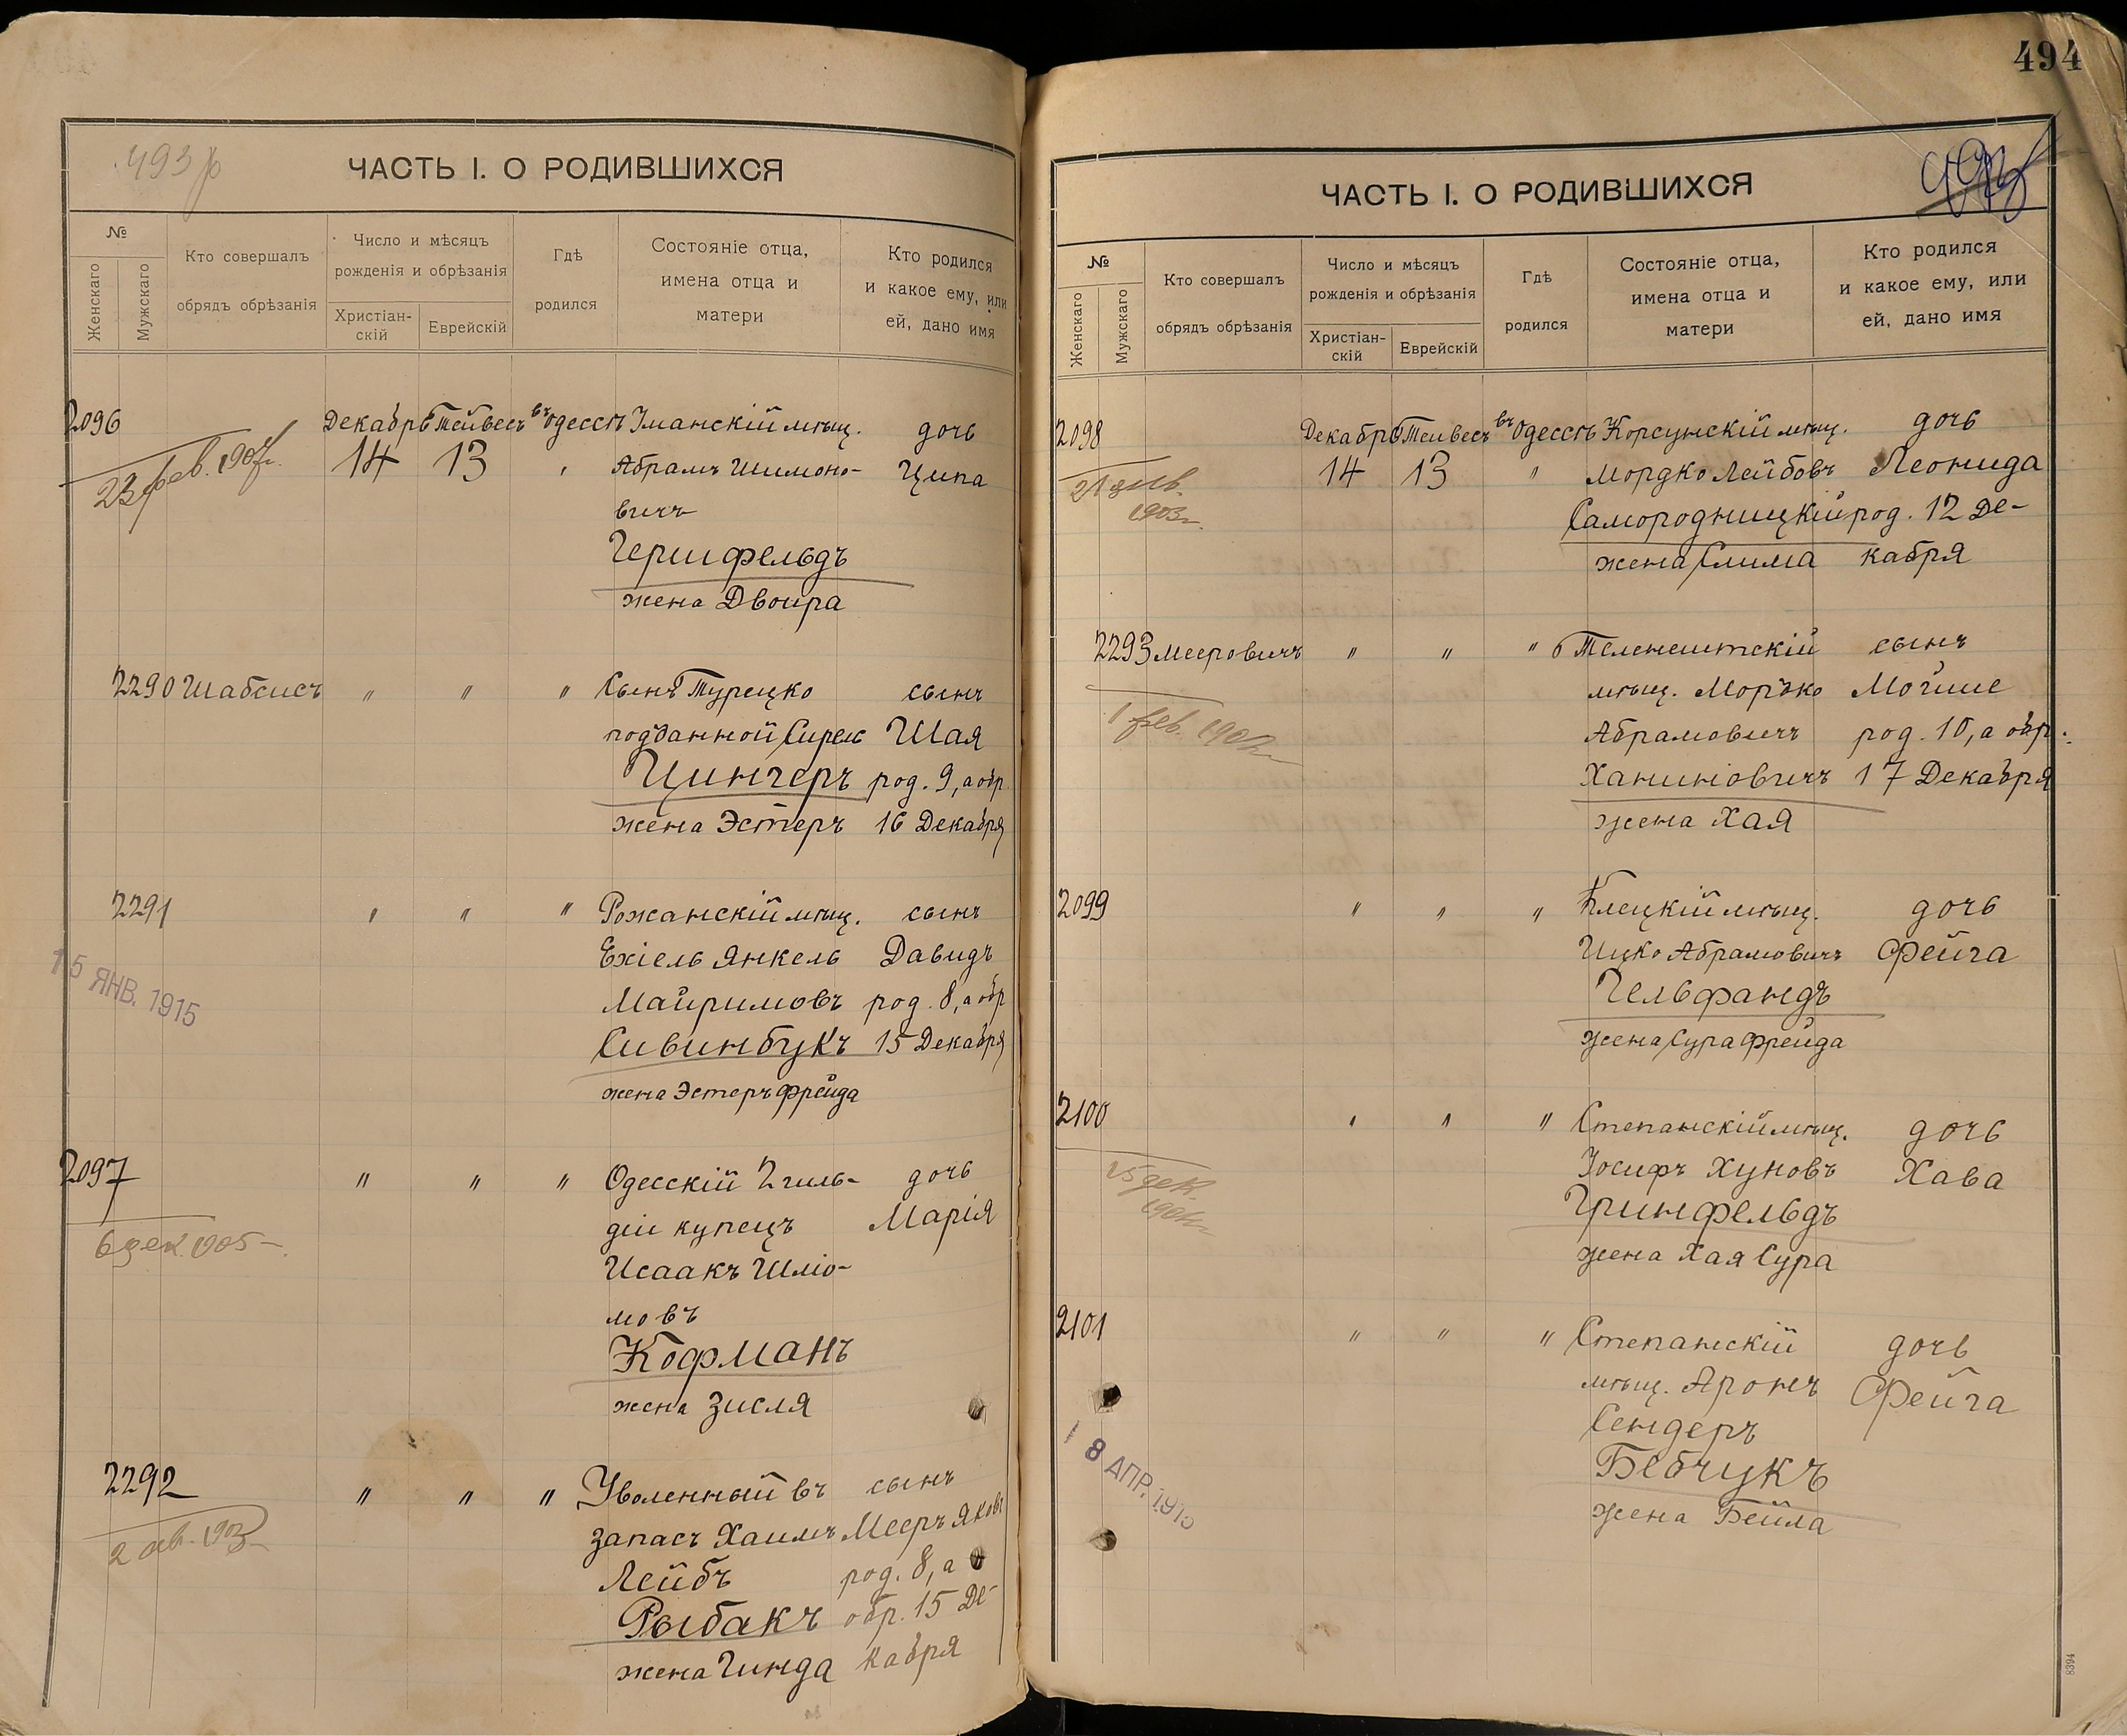 494
493
ЧАСТЬ I. О РОДИВШИХСЯ
№
Женскаго
Мужскаго
Кто совершалъ
обрядъ обрѣзанія
Число и мѣсяцъ
рожденія и обрѣзанія
Христіан-
скій
Еврейскій
Гдѣ
родился
Состояніе отца,
имена отца и
матери
Кто родился
и какое ему, или
ей, дано имя
2096 Декабрь Тейвесъ въ Одессѣ Уманскій мѣщ. дочь
23 фев. 1907 г. 14 13 Абрамъ Шимоно- Ципа
вичъ
Герифельдъ
жена Двойра
2290 Шабсисъ " " " Сынъ Турецко сынъ
подданной Суреи Шая
Цингеръ род. 9, а обр
жена Эстеръ 16 Декабря
2291 " " " Рожанскій мѣщ. сынъ
Ехіель Янкель Давидъ
15 ЯНВ. 1915
Майримовъ род. 8, а обр
Сивинбукъ 15 Декабря
жена Эстеръ Фрейда
2097 " " " Одесскій 2 гиль- дочь
діи купецъ Марія
6 дек. 1905
Исаакъ Шліо-
мовъ
Кофманъ
жена Зисля
2292 " " " Уволенный въ сынъ
запасъ Хаимъ Мееръ Яковъ
Лейбъ род. 8, а
Рыбакъ обр. 15 Де-
жена Гинда кабря
ЧАСТЬ I. О РОДИВШИХСЯ
№
Женскаго
Мужскаго
Кто совершалъ
обрядъ обрѣзанія
Число и мѣсяцъ
рожденія и обрѣзанія
Христіан-
скій
Еврейскій
Гдѣ
родился
Состояніе отца,
имена отца и
матери
Кто родился
и какое ему, или
ей, дано имя
2098 Декабрь Тейвесъ въ Одессѣ Корсунскій мѣщ. дочь
14 13 " Мордко Лейбовъ Леонида
Самородницкій род. 12 Де-
жена Слима кабря
2293 Мееровичъ " " " Теленештскій сынъ
мѣщ. Моръко Мойше
1 фев.
Абрамовичъ род. 10, а обр.
Ханиніовичъ 17 Декабря
жена Хая
2099 " " " Клецкій мѣщ. дочь
Ицко Абрамовичъ Фейга
Гельфандъ
жена Сура Фрейда
2100 " " " Степанскій мѣщ. дочь
Іосифъ Хуновъ Хава
25 дек.
Гринфельдъ
жена Хая Сура
2101 " " " Степанскій дочь
мѣщ. Аронъ Фейга
Сендеръ
18 АПР.
Бебчукъ
жена Бейла
8394